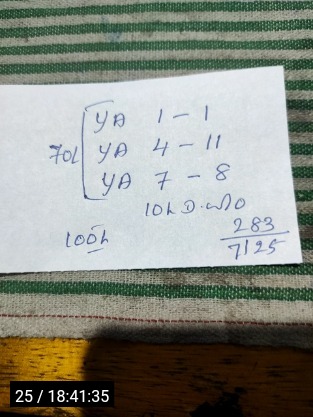 YA 1 - 1
70L YA 4 - 11
YA 7 - 8
100L
283
7125
25 / 18:41:35